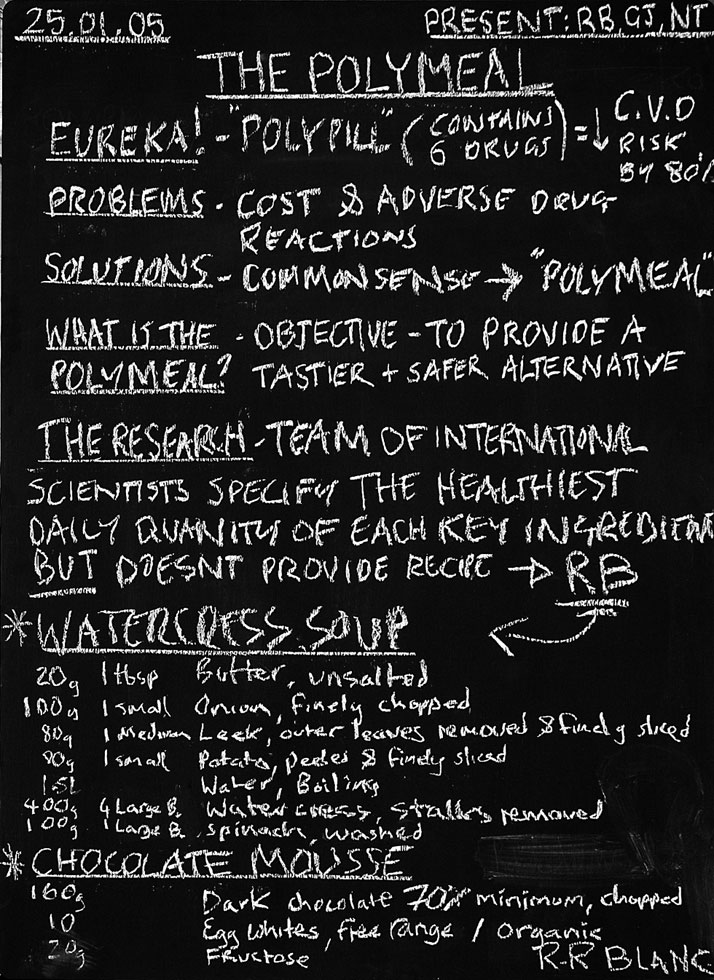 25.01.05 PRESENT: RB, GJ, NT
THE POLYMEAL
EUREKA! - "POLYPILL" (CONTAINS 6 DRUGS) = ↓ C.V.D RISK BY 80%
PROBLEMS - COST & ADVERSE DRUG
REACTIONS
SOLUTIONS - COMMONSENSE → "POLYMEAL"
WHAT IS THE - OBJECTIVE - TO PROVIDE A
POLYMEAL? TASTIER + SAFER ALTERNATIVE
THE RESEARCH - TEAM OF INTERNATIONAL
SCIENTISTS SPECIFY THE HEALTHIEST
DAILY QUANTITY OF EACH KEY INGREDIENT
BUT DOESNT PROVIDE RECIPE → RB
* WATERCRESS SOUP
20g 1 tbsp Butter, unsalted
100g 1 small Onion, finely chopped
80g 1 Medium Leek, outer leaves removed & finely sliced
90g 1 small Potato, peeled & finely sliced
1.5L Water, Boiling
400g 4 Large B. Watercress, stalks removed
100g 1 Large B. spinach, washed
* CHOCOLATE MOUSSE
160g Dark chocolate 70% minimum, chopped
10 Egg whites, free range / organic
20g Fructose
R-R BLANC